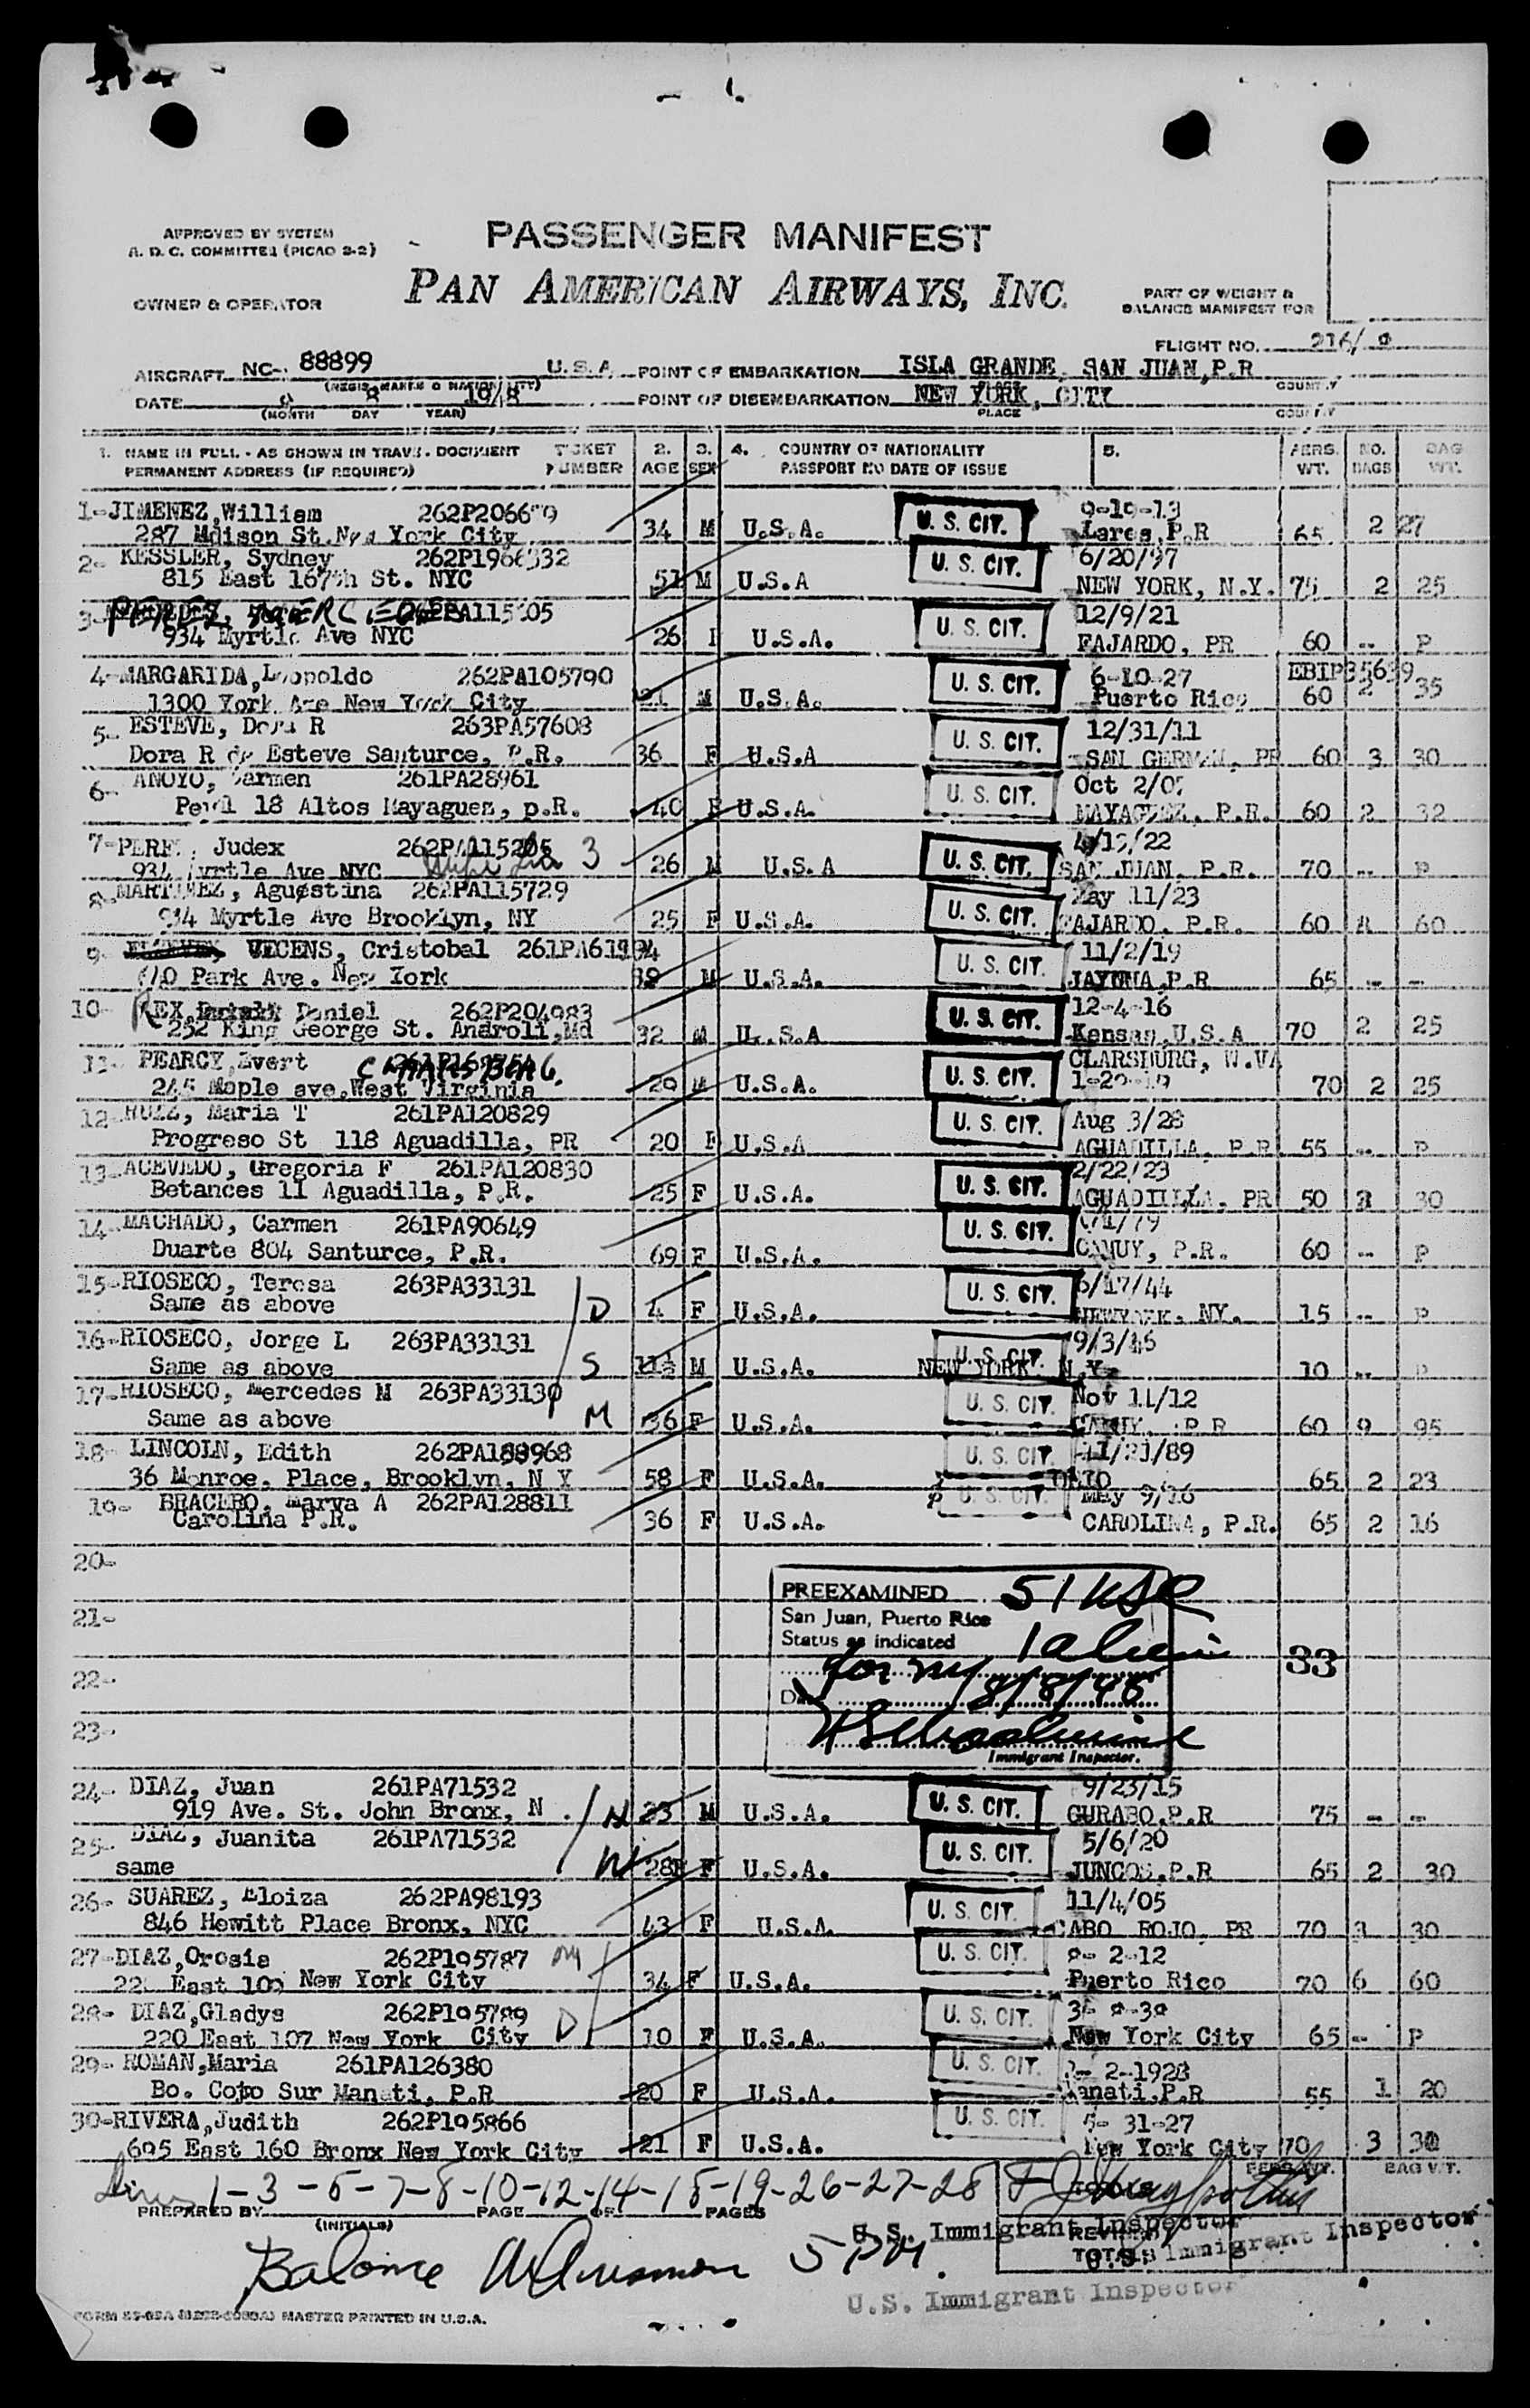 APPROVED BY SYSTEM
A. D. C. COMMITTEE (PICAO 2-2)
PASSENGER MANIFEST
PAN AMERICAN AIRWAYS, INC.
OWNER & OPERATOR
PART OF WEIGHT &
BALANCE MANIFEST FOR
FLIGHT NO. 216/
AIRCRAFT NC-- 88899 U.S.A POINT OF EMBARKATION ISLA GRANDE, SAN JUAN,P.R
COUNTRY
DATE 8 1948 POINT OF DISEMBARKATION NEW YORK, CITY
(MONTH DAY YEAR) PLACE COUNTRY
1. NAME IN FULL - AS SHOWN IN TRAVEL DOCUMENT TICKET 2. 3. 4. COUNTRY OF NATIONALITY 5. PERS. NO. BAG
PERMANENT ADDRESS (IF REQUIRED) NUMBER AGE SEX PASSPORT NO DATE OF ISSUE WT. BAGS WT.
1-JIMENEZ,William U. S. CIT. 9-19-13
287 Mdison St. York City 34 M U.S.A. Lares,P.R 65 2 27
2- KESSLER, Sydney U. S. CIT. 6/20/97
815 East 167th St. NYC 51 M U.S.A NEW YORK, N.Y. 75 2 25
3- PEREZ, MERCEDES U. S. CIT. 12/9/21
934 Myrtle Ave NYC 26 U.S.A. FAJARDO, PR 60 -- P
4-MARGARIDA,Leopoldo 262PA105790 U. S. CIT. 6-10-27 EBIP35639
1300 York Ave New York City 21 M U.S.A. Puerto Rico 60 2 35
5- ESTEVE, Dora R 263PA57608 U. S. CIT. 12/31/11
Dora R de Esteve Santurce, P.R. 36 F U.S.A SAN GERMAN, PR 60 3 30
6- Carmen 261PA28961 U. S. CIT. Oct 2/07
18 Altos Mayaguez, p.R. 40 F U.S.A. MAYAGUEZ, P.R. 60 2 32
7- Judex 262PA115205 3 U. S. CIT.
934 Myrtle Ave NYC 26 M U.S.A SAN JUAN, P.R. 70 -- P
8-MARTINEZ, Agustina 262PA115729 U. S. CIT. May 11/23
934 Myrtle Ave Brooklyn, NY 25 F U.S.A. FAJARDO, P.R. 60 60
9- VICENS, Cristobal U. S. CIT. 11/2/19
Park Ave. New York M U.S.A. JAYUYA,P.R 65 -- --
10- REX, Daniel 262P204983 U. S. CIT. 12-4-16
252 King George St. 32 M U.S.A Kansas,U.S.A 70 2 25
11- PEARCY, Evert U. S. CIT. CLARSBURG, W.VA
245 Maple ave,West Virginia 29 M U.S.A. 70 2 25
12-RUIZ, Maria T 261PA120829 U. S. CIT. Aug 3/28
Progreso St 118 Aguadilla, PR 20 F U.S.A AGUADILLA, P.R 55 -- P
13-ACEVEDO, Gregoria F 261PA120830 U. S. CIT. 2/22/23
Betances 11 Aguadilla, P.R. 25 F U.S.A. AGUADILLA, PR 50 30
14-MACHADO, Carmen 261PA90649 U. S. CIT.
Duarte 804 Santurce, P.R. 69 F U.S.A. CAMUY, P.R. 60 -- P
15-RIOSECO, Teresa 263PA33131 D U. S. CIT. 6/17/44
Same as above 4 F U.S.A. NEWYORK, NY. 15 -- P
16-RIOSECO, Jorge L 263PA33131 S U. S. CIT. 9/3/46
Same as above M U.S.A. NEW YORK N.Y. 10 -- P
17-RIOSECO, Mercedes M 263PA33130 M U. S. CIT. Nov 11/12
Same as above 36 F U.S.A. CAMUY, P.R 60 9 95
18- LINCOLN, Edith 262PA188968 U. S. CIT.
36 Monroe. Place, Brooklyn, N Y 58 F U.S.A. OHIO 65 2 23
19- BRACERO, Marya A 262PA128811 U. S. CIT. May
Carolina P.R. 36 F U.S.A. CAROLINA, P.R. 65 2 16
20-
PREEXAMINED 51 USC
21- San Juan, Puerto Rico
Status as indicated 1 alien
33
22- for NY
Date 8/8/48
23-
Immigrant Inspector.
24- DIAZ, Juan 261PA71532 U. S. CIT. 9/23/15
919 Ave. St. John Bronx, N H M U.S.A. GURABO,P.R 75 -- --
25- DIAZ, Juanita 261PA71532 U. S. CIT. 5/6/20
same W 28 F U.S.A. JUNCOS,P.R 65 2 30
26- SUAREZ, Eloiza 262PA98193 U. S. CIT. 11/4/05
846 Hewitt Place Bronx, NYC 43 F U.S.A. CABO ROJO, PR 70 3 30
27-DIAZ,Orosia 262P195787 M U. S. CIT. 2-12
East New York City 34 F U.S.A. Puerto Rico 70 6 60
28- DIAZ,Gladys 262P195789 D U. S. CIT.
220 East 107 New York City 10 F U.S.A. New York City 65 -- P
29- ROMAN,Maria 261PA126380 U. S. CIT. 2-1928
Bo. Coto Sur Manati, P.R 20 F U.S.A. Manati,P.R 55 1 20
30-RIVERA,Judith 262P195866 U. S. CIT. 5- 31-27
695 East 160 Bronx New York City 21 F U.S.A. New York City 70 3
Lines 1-3-5-7-8-10-12-14-18-19-26-27-28
PERS. WT. BAG WT.
PREPARED BY (INITIALS) PAGE OF PAGES
U.S. Immigrant Inspector
REVISED TOTALS
U.S. Immigrant Inspector
Balance 5 PM.
U.S. Immigrant Inspector
MASTER PRINTED IN U.S.A.